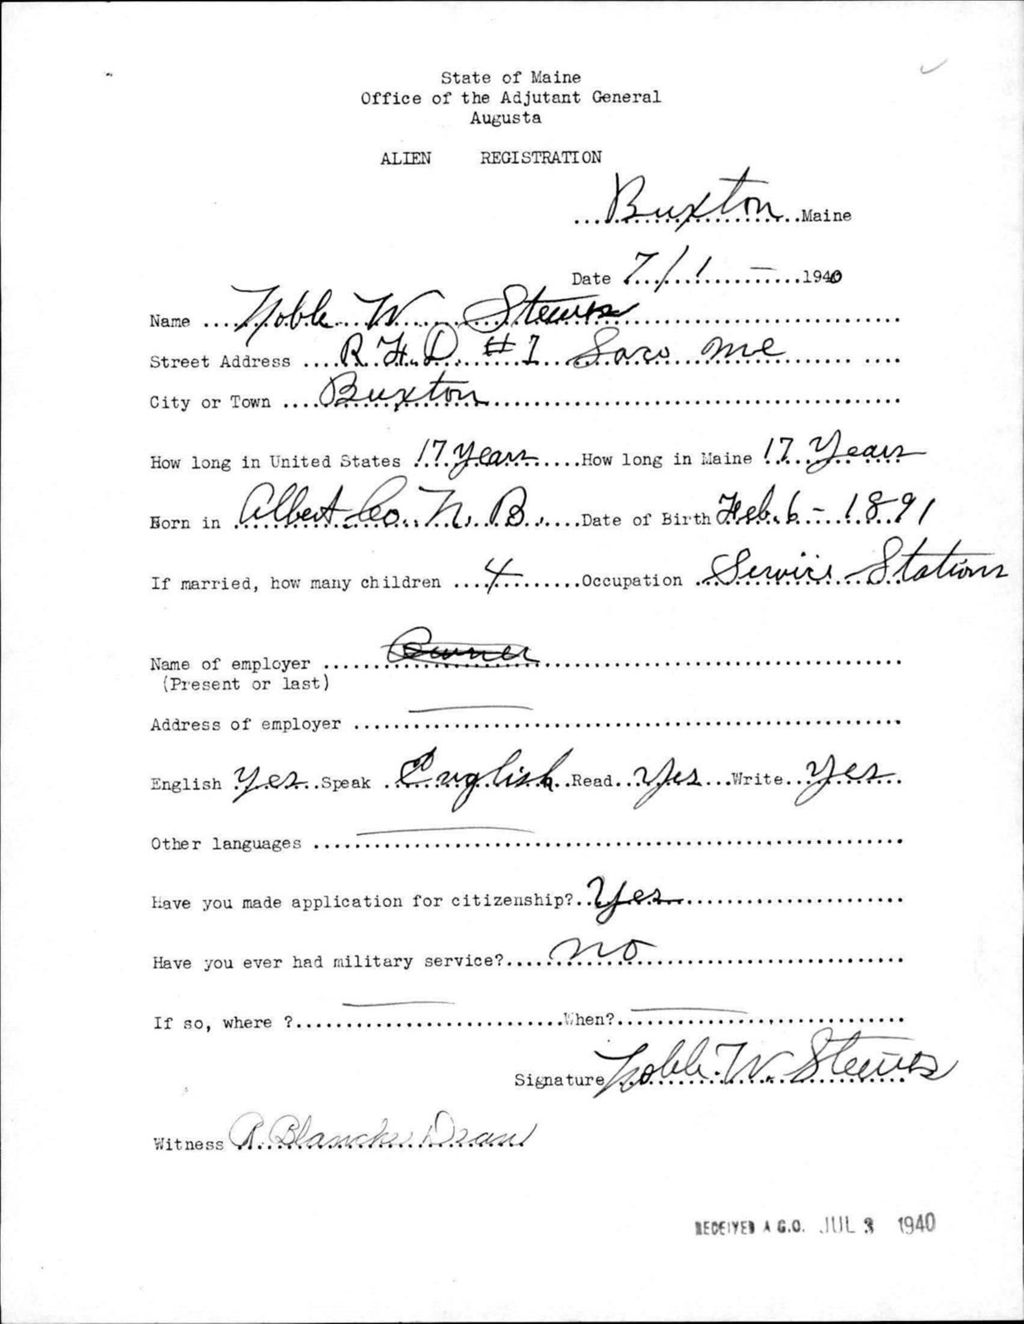 State of Maine
Office of the Adjutant General
Augusta
ALIEN REGISTRATION
Buxton Maine
Date 7/1 – 1940
Name Noble W Steeves
Street Address R.F.D. #1 Saco Me
City or Town Buxton
How long in United States 17 Years How long in Maine 17 Years
Born in Albert Co. N. B. Date of Birth Feb. 6 - 1891
If married, how many children 4 Occupation Service Stations
Name of employer Owner
(Present or last)
Address of employer
English Yes Speak English Read Yes Write Yes
Other languages
Have you made application for citizenship? Yes
Have you ever had military service? no
If so, where ? When?
Signature Noble W. Steeves
Witness R. Blanche
RECEIVED A G.O. JUL 3 1940